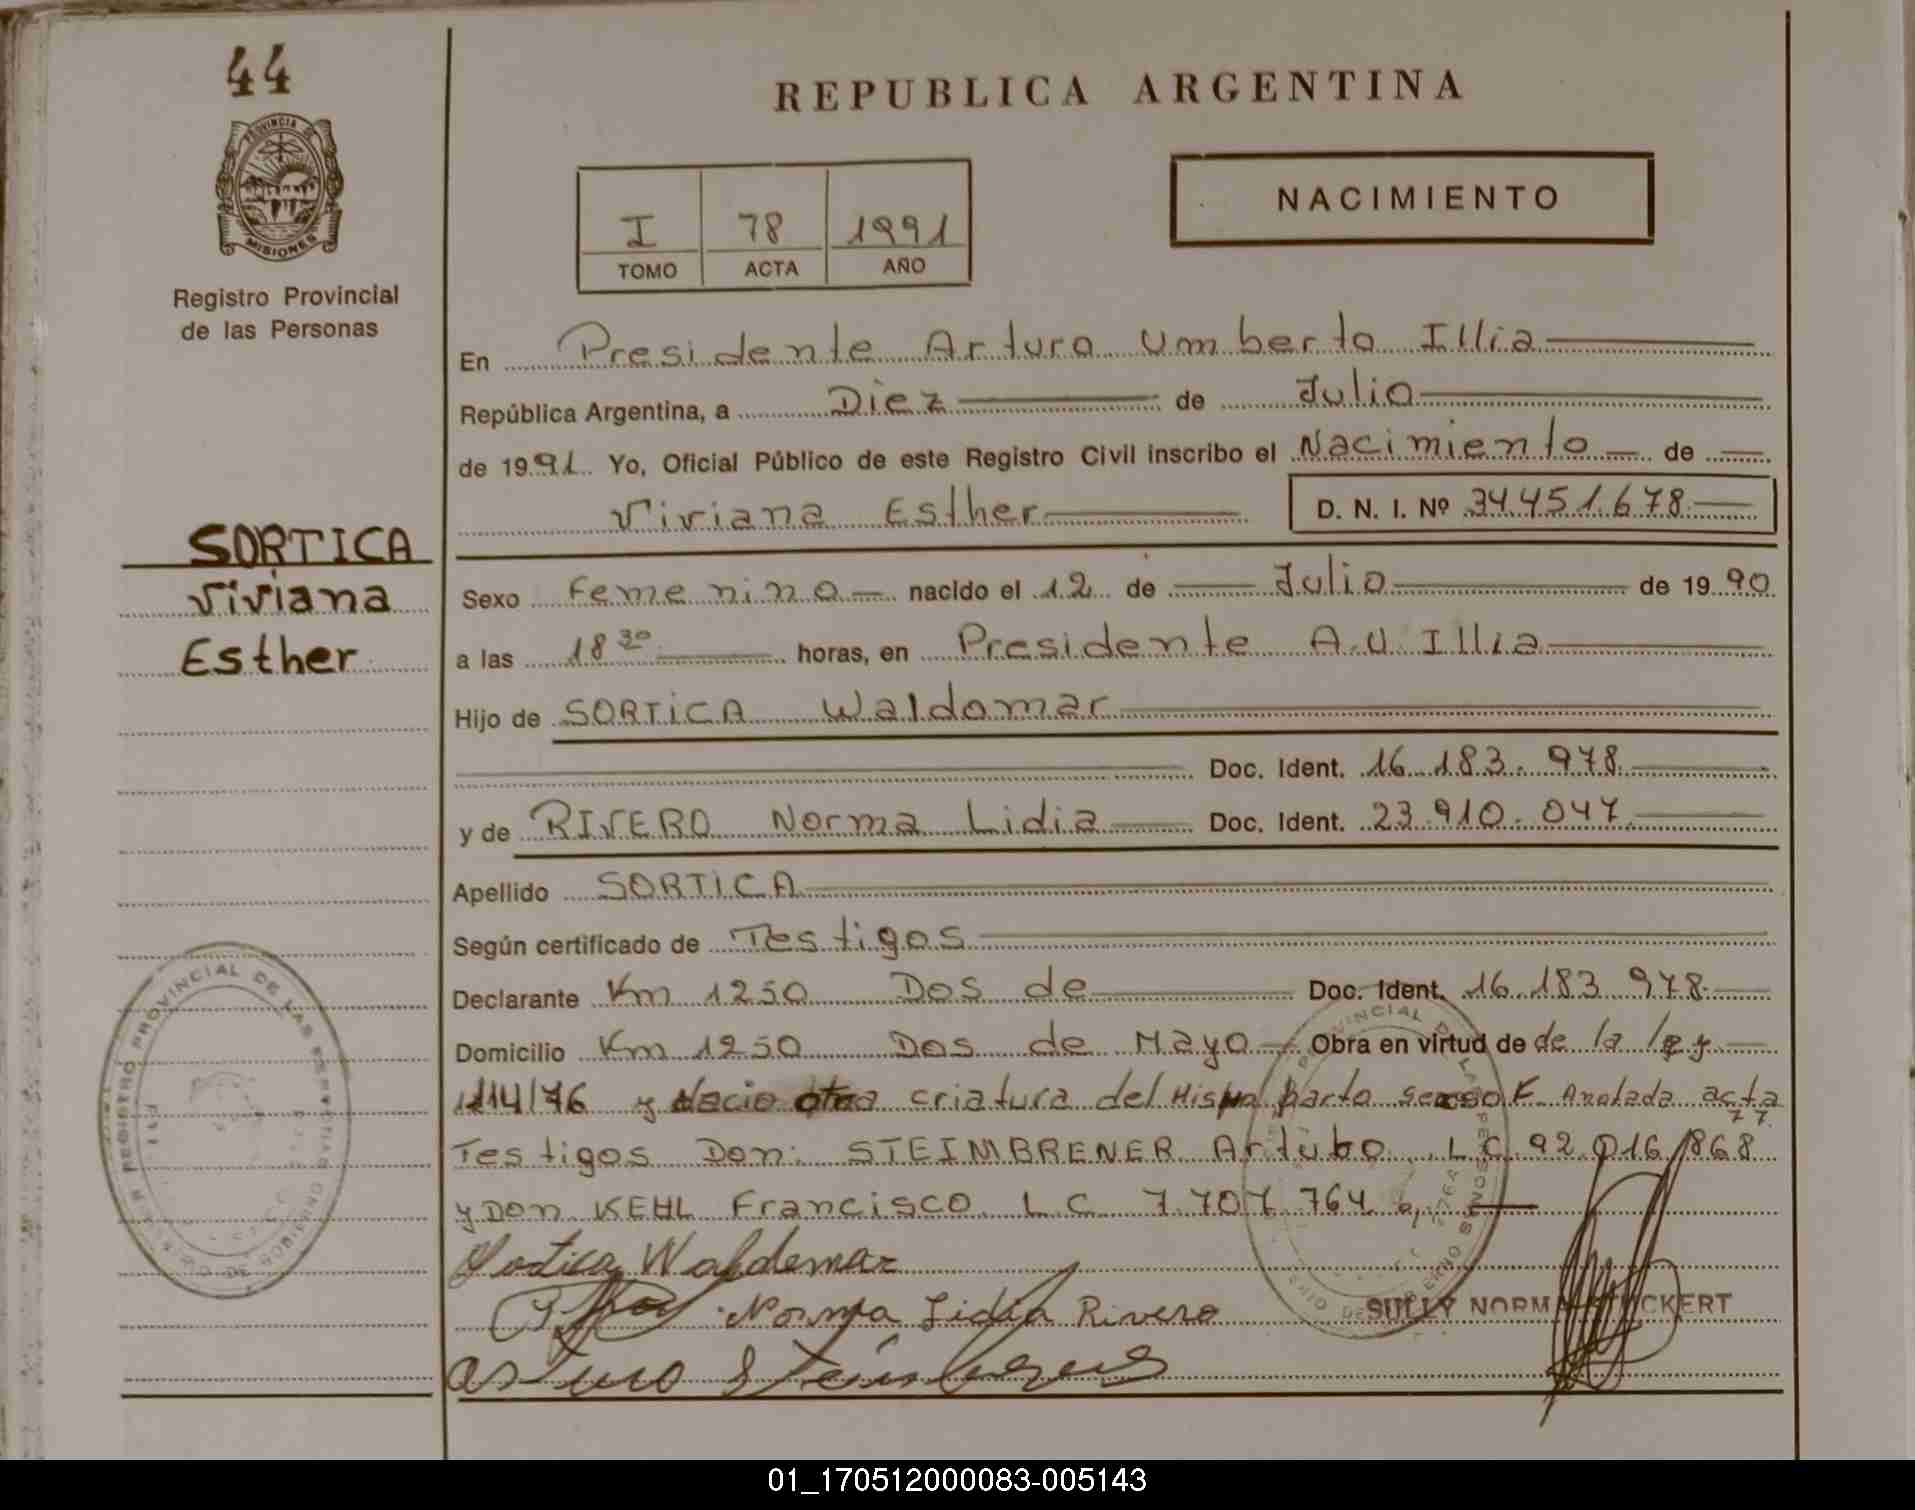 44
PROVINCIA DE
MISIONES
Registro Provincial
de las Personas
SORTICA
Viviana
Esther
REPUBLICA ARGENTINA
I 78 1991
TOMO ACTA AÑO
NACIMIENTO
En Presidente Arturo Umberto Illia
República Argentina, a Diez de Julio
de 1991 Yo, Oficial Público de este Registro Civil inscribo el Nacimiento de
Viviana Esther D. N. I. Nº 34451678
Sexo Femenino nacido el 12 de Julio de 1990
a las 18 30 horas, en Presidente A.U. Illia
Hijo de SORTICA Waldomar
Doc. Ident. 16.183.978
y de RIVERO Norma Lidia Doc. Ident. 23.910.047
Apellido SORTICA
Según certificado de Testigos
Declarante Km 1250 Dos de Doc. Ident. 16.183.978
Domicilio Km 1250 Dos de Mayo Obra en virtud de de la ley
1114/76 y Nacio otra criatura del Mismo parto sexo F. Anotada acta
77
Testigos Don: STEIMBRENER Arturo L.C. 92.016.868
y Don KEHL Francisco L.C. 7.707.764
Sortica Waldemar
Norma Lidia Rivero
SULLY NORMA STUCKERT
Arturo
REGISTRO PROVINCIAL DE LAS PERSONAS
01_170512000083-005143